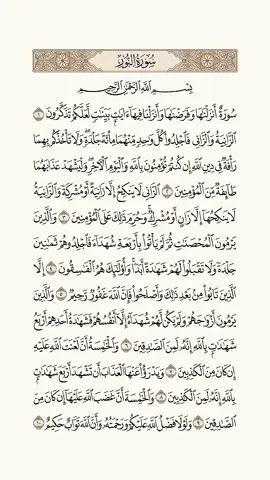 سُورَةُ النُّورِ
بِسْمِ اللَّهِ الرَّحْمَٰنِ الرَّحِيمِ
سُورَةٌ أَنزَلْنَٰهَا وَفَرَضْنَٰهَا وَأَنزَلْنَا فِيهَآ ءَايَٰتٍۭ بَيِّنَٰتٍ لَّعَلَّكُمْ تَذَكَّرُونَ ١
ٱلزَّانِيَةُ وَٱلزَّانِي فَٱجْلِدُوا۟ كُلَّ وَٰحِدٍ مِّنْهُمَا مِا۟ئَةَ جَلْدَةٍ وَلَا تَأْخُذْكُم بِهِمَا
رَأْفَةٌ فِي دِينِ ٱللَّهِ إِن كُنتُمْ تُؤْمِنُونَ بِٱللَّهِ وَٱلْيَوْمِ ٱلْءَاخِرِ وَلْيَشْهَدْ عَذَابَهُمَا
طَآئِفَةٌ مِّنَ ٱلْمُؤْمِنِينَ ٢ ٱلزَّانِي لَا يَنكِحُ إِلَّا زَانِيَةً أَوْ مُشْرِكَةً وَٱلزَّانِيَةُ
لَا يَنكِحُهَآ إِلَّا زَانٍ أَوْ مُشْرِكٌ وَحُرِّمَ ذَٰلِكَ عَلَى ٱلْمُؤْمِنِينَ ٣ وَٱلَّذِينَ
يَرْمُونَ ٱلْمُحْصَنَٰتِ ثُمَّ لَمْ يَأْتُوا۟ بِأَرْبَعَةِ شُهَدَآءَ فَٱجْلِدُوهُمْ ثَمَٰنِينَ
جَلْدَةً وَلَا تَقْبَلُوا۟ لَهُمْ شَهَٰدَةً أَبَدًا وَأُو۟لَٰٓئِكَ هُمُ ٱلْفَٰسِقُونَ ٤ إِلَّا
ٱلَّذِينَ تَابُوا۟ مِنۢ بَعْدِ ذَٰلِكَ وَأَصْلَحُوا۟ فَإِنَّ ٱللَّهَ غَفُورٌ رَّحِيمٌ ٥ وَٱلَّذِينَ
يَرْمُونَ أَزْوَٰجَهُمْ وَلَمْ يَكُن لَّهُمْ شُهَدَآءُ إِلَّآ أَنفُسُهُمْ فَشَهَٰدَةُ أَحَدِهِمْ أَرْبَعُ
شَهَٰدَٰتٍۭ بِٱللَّهِ إِنَّهُۥ لَمِنَ ٱلصَّٰدِقِينَ ٦ وَٱلْخَٰمِسَةُ أَنَّ لَعْنَتَ ٱللَّهِ عَلَيْهِ
إِن كَانَ مِنَ ٱلْكَٰذِبِينَ ٧ وَيَدْرَؤُا۟ عَنْهَا ٱلْعَذَابَ أَن تَشْهَدَ أَرْبَعَ شَهَٰدَٰتٍۭ
بِٱللَّهِ إِنَّهُۥ لَمِنَ ٱلْكَٰذِبِينَ ٨ وَٱلْخَٰمِسَةَ أَنَّ غَضَبَ ٱللَّهِ عَلَيْهَآ إِن كَانَ مِنَ
ٱلصَّٰدِقِينَ ٩ وَلَوْلَا فَضْلُ ٱللَّهِ عَلَيْكُمْ وَرَحْمَتُهُۥ وَأَنَّ ٱللَّهَ تَوَّابٌ حَكِيمٌ ١٠